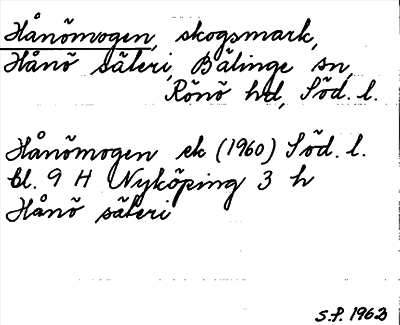 Hånömogen, skogsmark,
Hånö säteri, Bälinge sn,
Rönö hd, Söd. l.
Hånömogen ek (1960) Söd. l.
bl. 9 H Nyköping 3 h
Hånö säteri
S.P. 1962